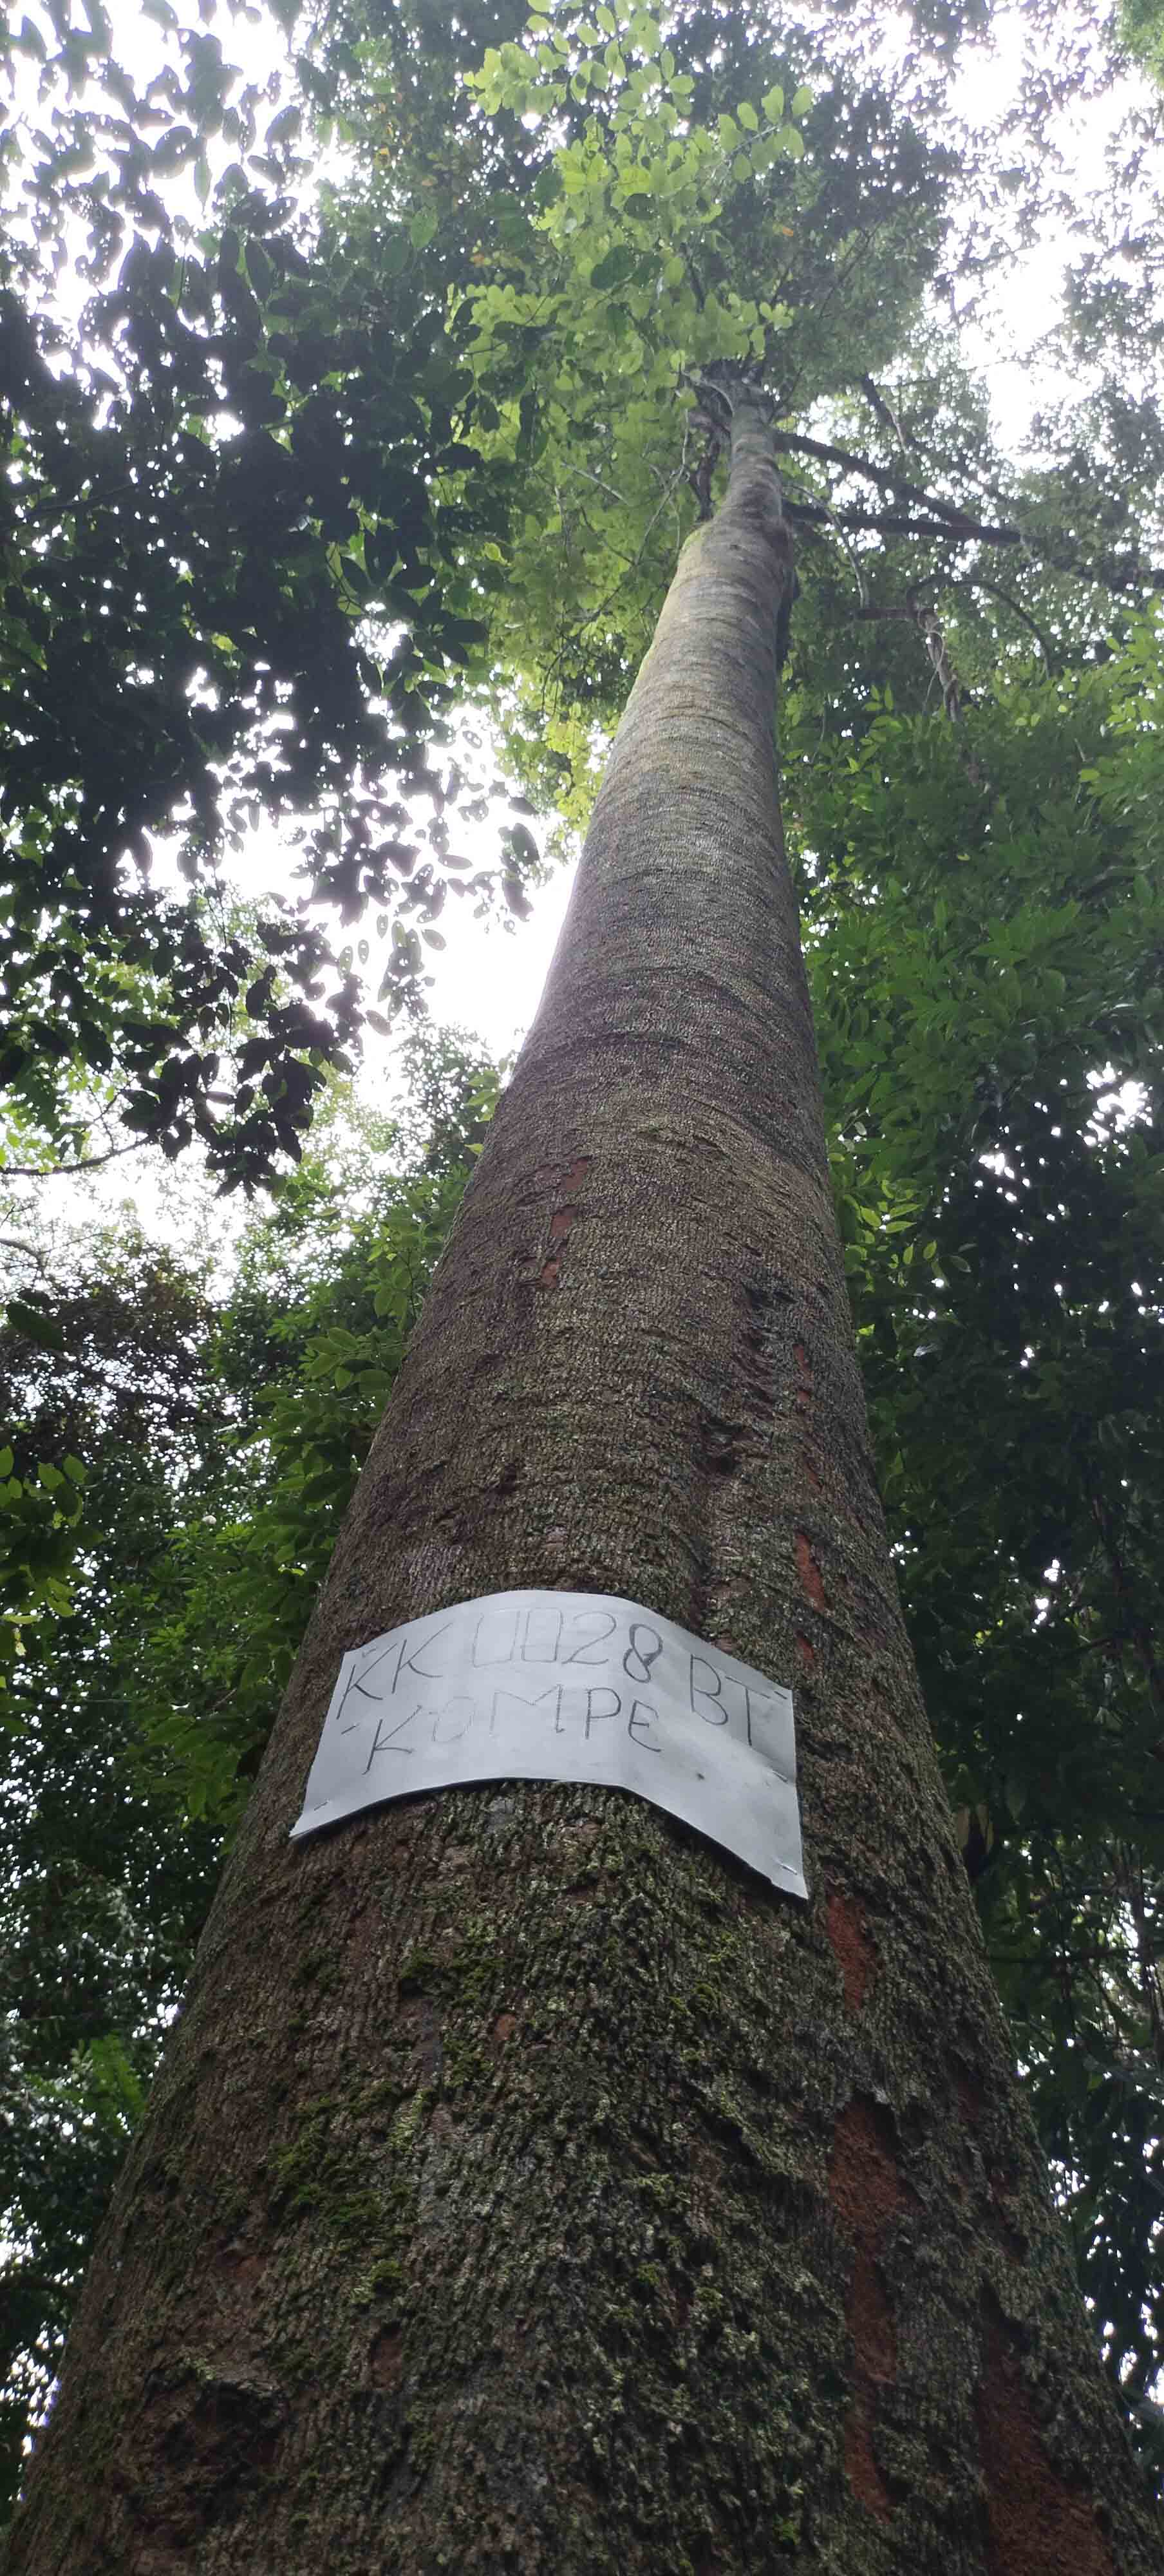 KK 0028 BT
KOMPE